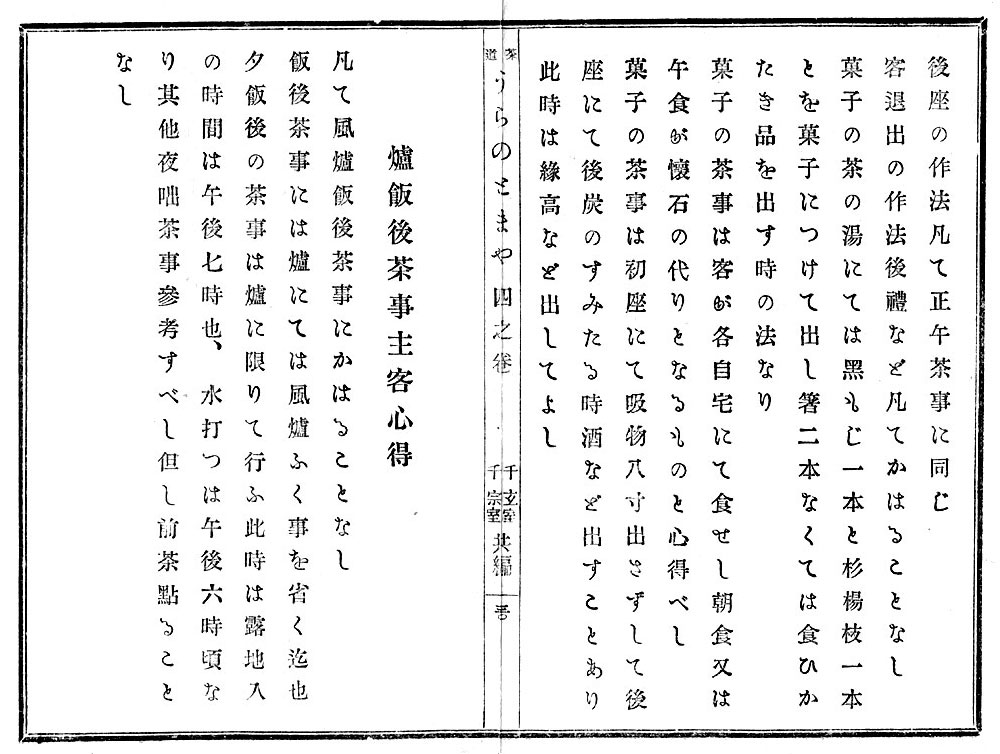 後座の作法凡て正午茶事に同じ
客退出の作法後禮など凡てかはることなし
菓子の茶の湯にては黑もじ一本と杉楊枝一本
とを菓子につけて出し箸二本なくては食ひか
たき品を出す時の法なり
菓子の茶事は客が各自宅にて食せし朝食又は
午食が懷石の代りとなるものと心得べし
菓子の茶事は初座にて吸物八寸出さずして後
座にて後炭のすみたる時酒など出すことあり
此時は緣高など出してよし
茶道
うらのとまや四之卷
千玄室
千宗室
共編
爐飯後茶事主客心得
凡て風爐飯後茶事にかはることなし
飯後茶事には爐にては風爐ふく事を省く迄也
夕飯後の茶事は爐に限りて行ふ此時は露地入
の時間は午後七時也、水打つは午後六時頃な
り其他夜咄茶事參考すべし但し前茶點ること
なし